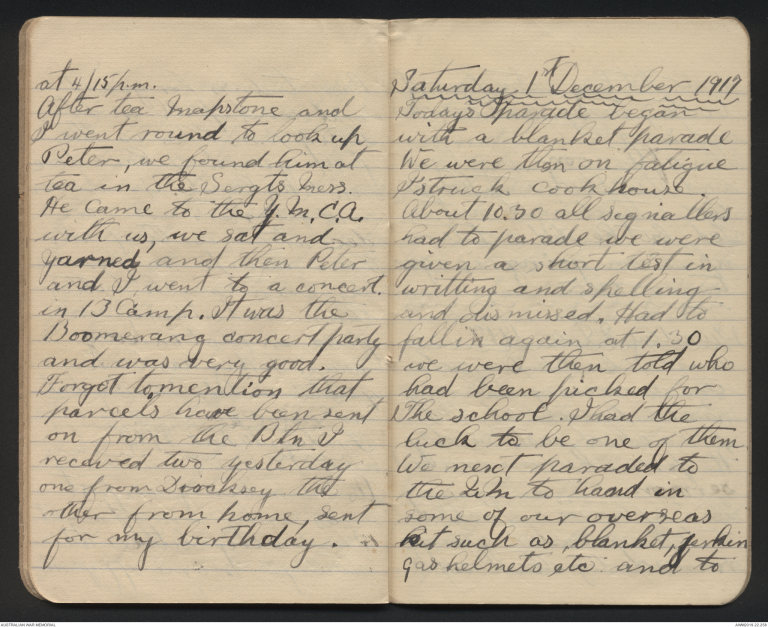 at 4/15 p.m.
After tea Mapstone and
I went round to look up
Peter, we found him at
tea in the Sergts Mess.
He came to the Y.M.C.A.
with us, we sat and
yarned, and then Peter
and I went to a concert.
in 13 Camp. It was the
Boomerang concert party
and was very good.
Forgot to mention that
parcels have been sent
on from the Btn I
received two yesterday
one from the
other from home, sent
for my birthday.
Saturday 1st December 1917
Todays parade began
with a blanket parade
We were then on fatigue
I struck cook house.
About 10.30 all signallers
had to parade we were
given a short test in
writting and spelling
and dismissed. Had to
fall in again at 1.30
we were then told who
had been picked for
The school. I had the
luck to be one of them
We next paraded to
the Q.M to hand in
some of our overseas
kit such as, blanket, jerkin
gas helmets etc and to
AUSTRALIAN WAR MEMORIAL
AWM2019.22.258